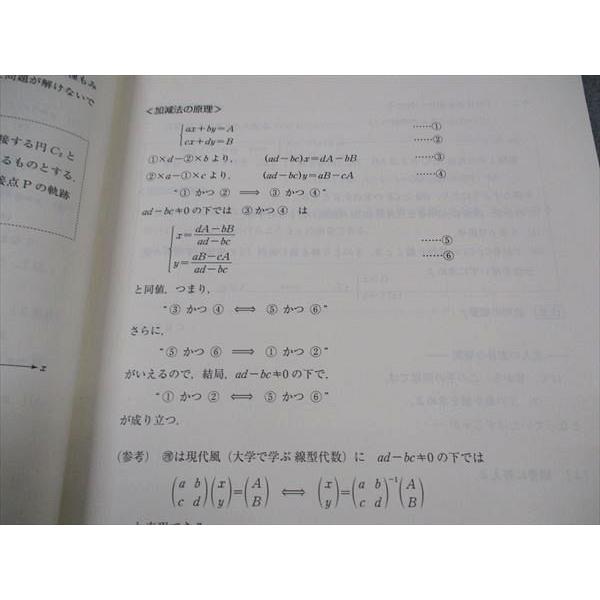 問題が解けないで
接する円 C₂ と
るものとする.
接点 P の軌跡
x
＜加減法の原理＞
ax+by=A ……①
cx+dy=B ……②
①×d−②×b より, (ad−bc)x=dA−bB ……③
②×a−①×c より, (ad−bc)y=aB−cA ……④
“① かつ ② ⟹ ③ かつ ④”
ad−bc≠0 の下では ③かつ④ は
x=(dA−bB)/(ad−bc) ……⑤
y=(aB−cA)/(ad−bc) ……⑥
と同値. つまり,
“③ かつ ④ ⟺ ⑤ かつ ⑥”
さらに,
“⑤ かつ ⑥ ⟹ ① かつ ②”
がいえるので, 結局, ad−bc≠0 の下で,
“① かつ ② ⟺ ⑤ かつ ⑥”
が成り立つ.
(参考) は現代風 (大学で学ぶ 線型代数) に ad−bc≠0 の下では
(a b / c d)(x / y)=(A / B) ⟺ (x / y)=(a b / c d)⁻¹(A / B)